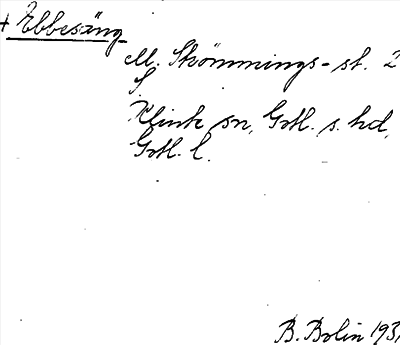 + Ebbesäng
M. Strömmings-st. 2
S.
Klinte sn, Gotl. s. hd,
Gotl. l.
B. Bolin 1931